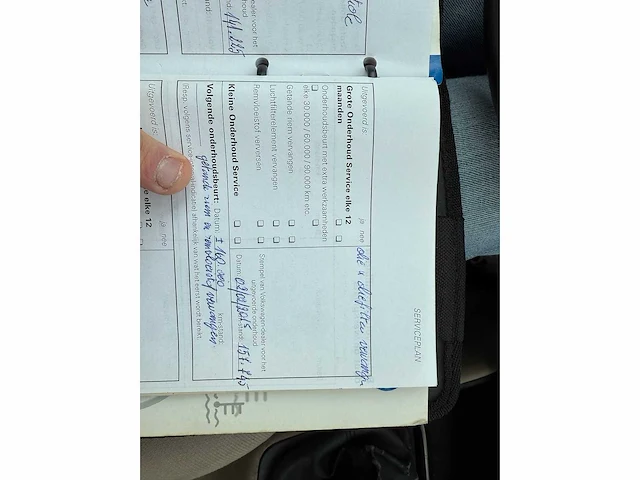 SERVICEPLAN
Uitgevoerd is: ja nee
Grote Onderhoud Service elke 12
maanden
Onderhoudsbeurt met extra werkzaamheden
elke 30.000 / 60.000 / 90.000 km etc.
Getande riem vervangen
Luchtfilterelement vervangen
Remvloeistof verversen
Kleine Onderhoud Service
olie + oliefilter vervangen
Stempel van Volkswagendealer voor het
uitgevoerde onderhoud
Datum: 02/02/2015 stand: 151.745
Volgende onderhoudsbeurt: Datum: ± 160.000 km-stand:
getande riem en remvloeistof vervangen
Resp. volgens service afhankelijk van wat het eerst wordt bereikt.
Uitgevoerd is:
ja nee
elke 12
dealer voor het
141.225